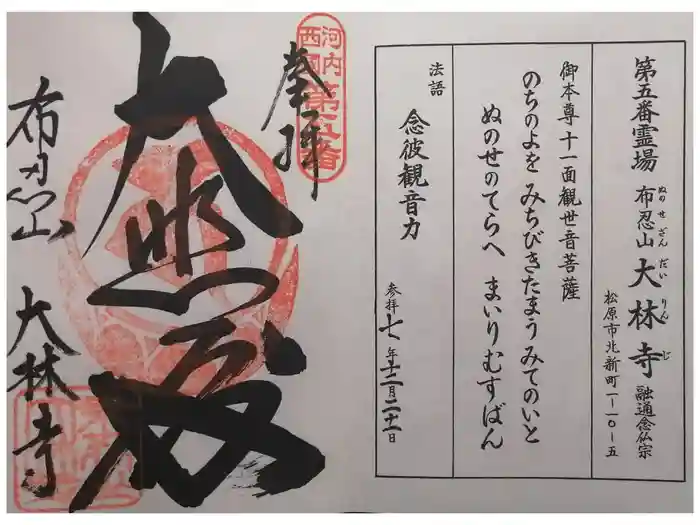 第五番霊場 布忍山 大林寺 融通念仏宗
ぬのせざん だいりんじ
松原市北新町一ー一〇ー五
御本尊 十一面観世音菩薩
のちのよを みちびきたまう みてのいと
ぬのせのてらへ まいりむすばん
法語 念彼観音力
参拝 七年十二月二十一日
河内
西国
第五番
奉拝
大悲殿
布忍山 大林寺